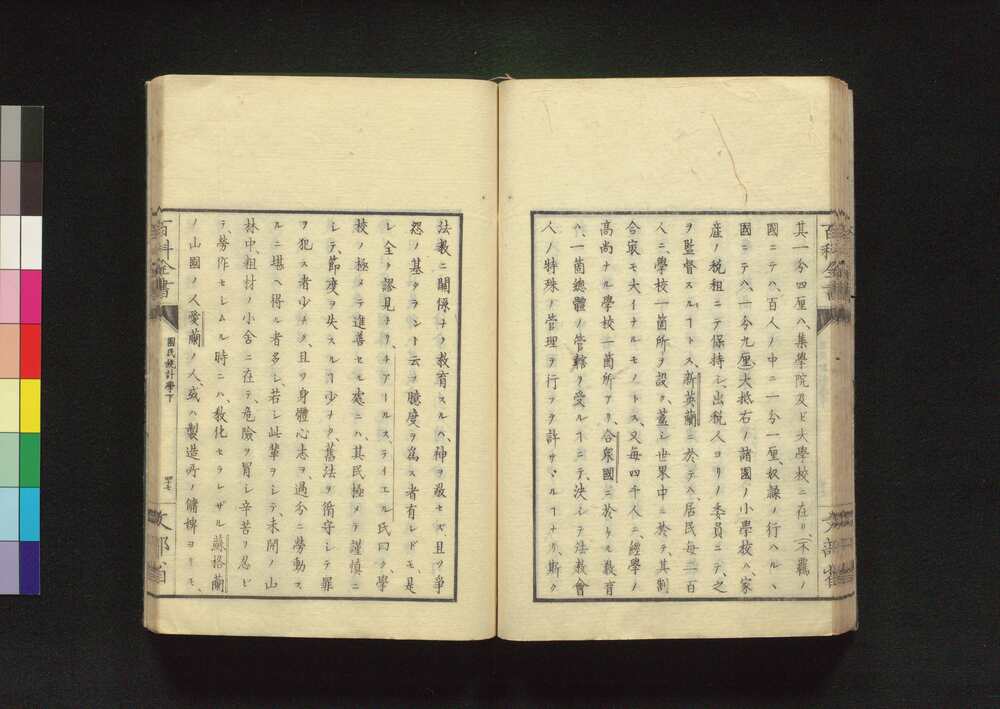 其一分四厘ハ、集學院及ビ大學校ニ在リ、不羈ノ
國ニテハ、百人ノ中ニ一分一厘、奴隷ノ行ハルヽ
國ニテハ、一分九厘、大抵右ノ諸國ノ小學校ハ、家
産ノ税租ニテ保持シ、出税人ヨリノ委員ニテ、之
ヲ監督スルヿトス、新英蘭ニ於テハ、居民每二百
人ニ、學校一箇所ヲ設ク、蓋シ世界中ニ於テ、其割
合最モ大イナルモノトス、又每四千人ニ、經學ノ
高尚ナル學校一箇所アリ、合衆國ニ於ケル敎育
ハ、一箇總體ノ管轄ヲ受ルヿニテ、決シテ法敎會
人ノ特殊ノ管理ヲ行フヲ許サヽルヿナリ、斯ク
百科全書
文部省
法敎ニ關係ナク敎育スルハ、神ヲ敬セズ、且ツ爭
怨ノ基タラント云フ臆度ヲ爲ス者有レドモ、是
レ全ク謬見ナリ、チアールス、ライエル氏曰ク、學
校ノ極メテ進善セル處ニハ、其民極メテ謹愼ニ
シテ、節度ヲ失スルヿ少ナク、舊法ヲ循守シテ罪
ヲ犯ス者少ナク、且ツ身體心志ヲ、過分ニ勞動ス
ルニ堪ヘ得ル者多シ、若シ此輩ヲシテ、未開ノ山
林中、粗材ノ小舍ニ在テ、危險ヲ冒シ辛苦ヲ忍ビ
テ、勞作セシムル時ニハ、敎化セラレザル蘇格蘭
ノ山國ノ人、愛蘭ノ人、或ハ製造所ノ傭婢ヨリモ、
百科全書
國民統計學下
四十七
文部省